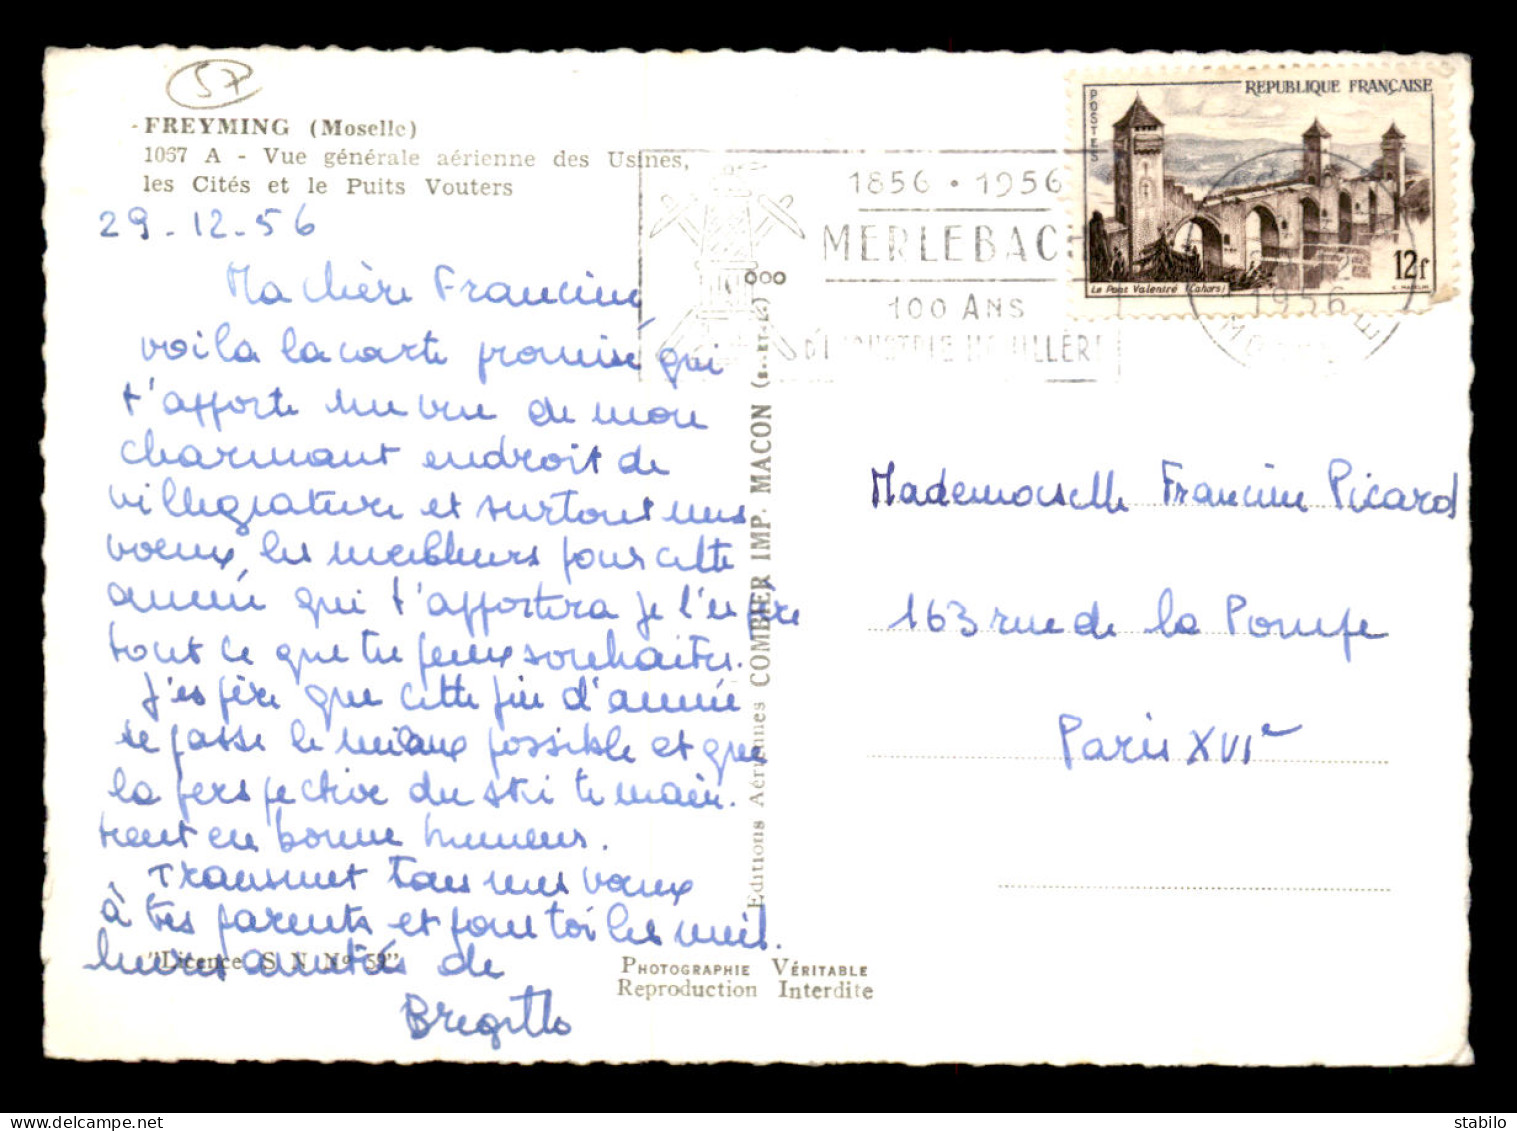 57
FREYMING (Moselle)
1067 A - Vue générale aérienne des Usines,
les Cités et le Puits Vouters
29-12-56
Ma chère Francine
voila la carte promise qui
t'apporte une vue de mon
charmant endroit de
villegiature et surtout mes
voeux les meilleurs pour cette
année qui t'apportera je l'espère
tout ce que tu peux souhaiter.
J'espère que cette fin d'année
se passe le mieux possible et que
la perspective du ski te main.
tient en bonne humeur.
Transmet tous mes voeux
à tes parents et pour toi les meil.
leures amitiés de
Bregitte
"Licence S N No 59"
Editions Aériennes COMBIER IMP. MACON (S.-ET-L.)
PHOTOGRAPHIE VÉRITABLE
Reproduction Interdite
1856 • 1956
MERLEBACH
100 ANS
D'INDUSTRIE HOUILLÈRE
1956
REPUBLIQUE FRANÇAISE
POSTES
Le Pont Valentré (Cahors)
12f
Mademoiselle Francine Picard
163 rue de la Pompe
Paris XVIe
stabilo
www.delcampe.net